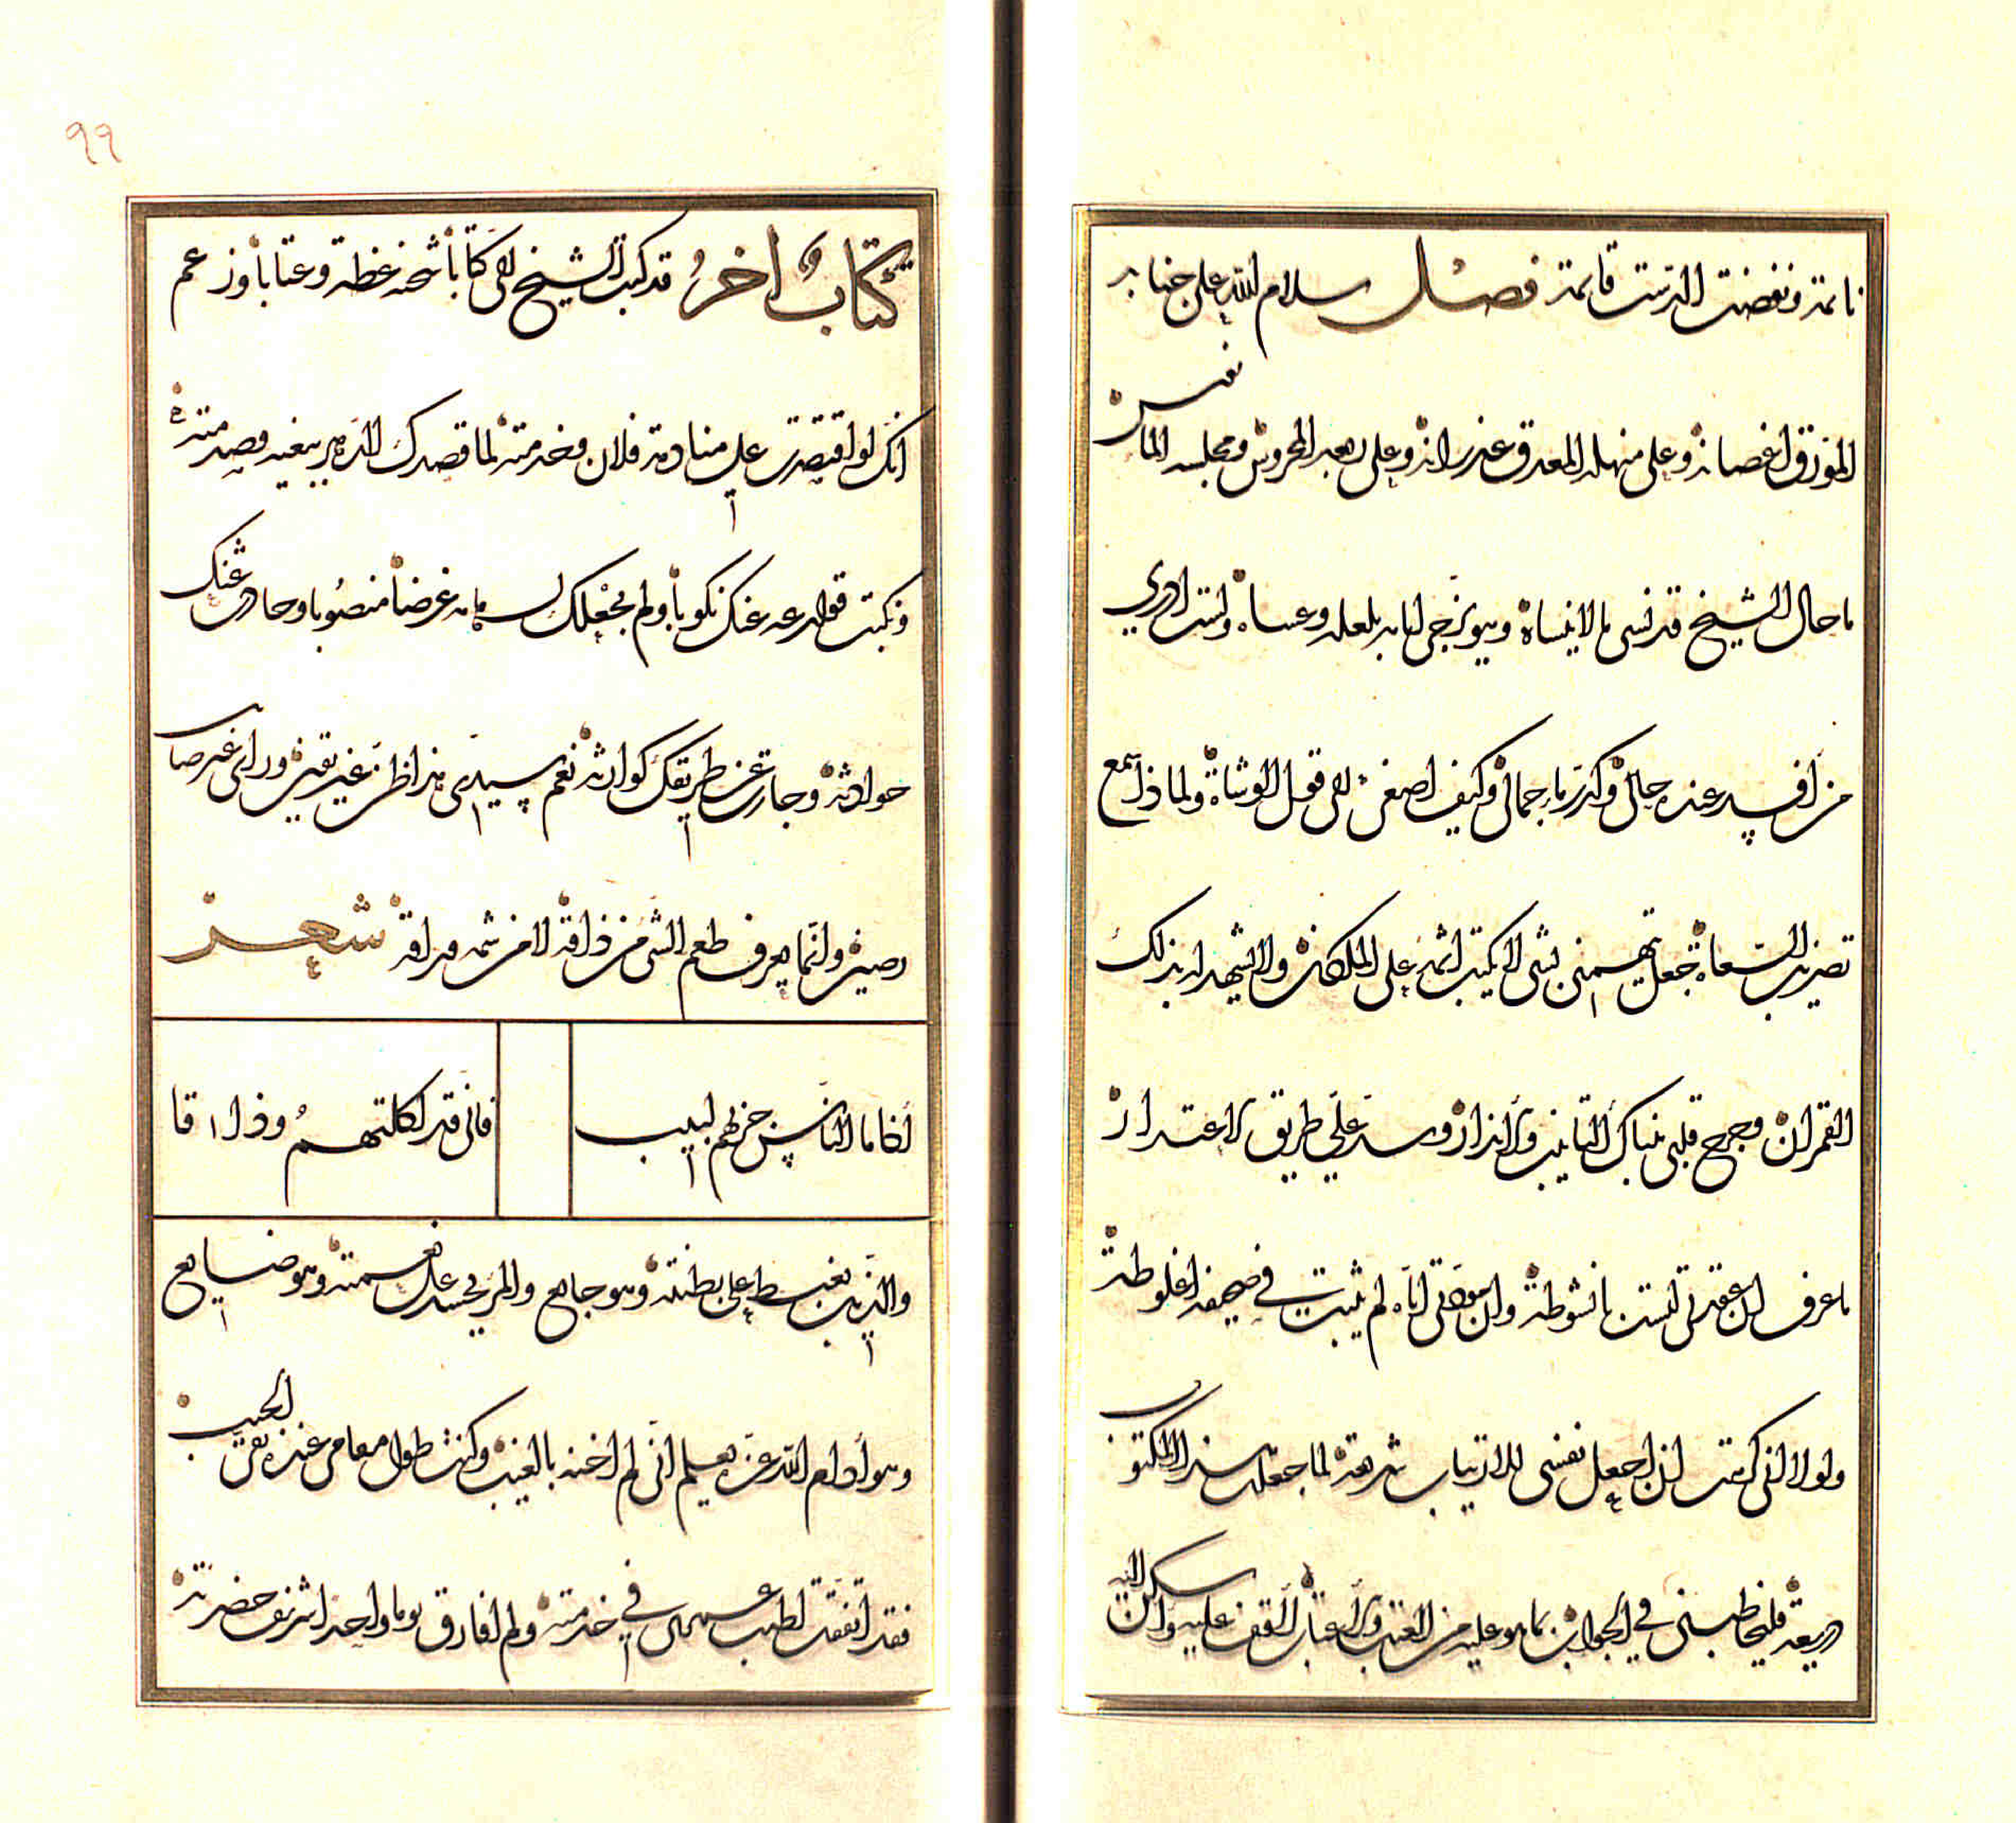 نائمة ونفضت الدست قائمة فصل سلام الله على جنابه
المورق اغصانه وعلى منهله المغدق غدرانه وعلى ربعه المحروس ومجلسه المانوس
ما حال الشيخ قد نسى ما لا ينساه وهو يزجى ايامه بلعله وعساه ولست ادرى
من افسد عنده حالى وكدر ماء جمالى وكيف اصغى الى قول الوشاة ولماذا سمع
تضريب السعاة فجعل يتهمنى بشى لا يكتب اثمه على الملكان ولا يشهد به لذلك
القمران وجرح قلبى بتلك التانيب والانذار وسد على طريق الاعتذار
ما عرف ان عقدتى ليست بانشوطة وان مودتى اياه لم يثبت فى صحيفة اغلوطة
ولولا انى كرهت ان اجعل نفسى للارتياب شريعة لما جعلت هذا المكتوب
ذريعة فليخاطبنى فى الجواب بما هو عليه من العتب والاعتاب لاقف عليه واسكن اليه
٩٩
كتاب اخر قد كتب الشيخ الى كتابا شحنه غظة وعتابا وزعم
انك لو اقتصرت على منادمة فلان وخدمته لما قصدك الدهر ببغيه وصدمته
ونكبت قوارعه عنك نكوبا ولم يجعلك لسهامه غرضا منصوبا وحادت عنك
حوادثه وجارت عن طريقك كوارثه نعم سيدى هذا ظن غير يقين وراى غير صا
رصين وانما يعرف طعم الشى من ذاقه لا من شمه وراقه شعر
اذا ما الناس جربهم لبيب فانى قد اكلتهم وذاقا
والذيب يغبط على بطنته وهو جايع والمرء يحسد على نعمته وهو ضايع
وهو ادام الله عزه يعلم انى لم اخنه بالغيب وكنت طول مقامى عنده نقى الجيب
فقد انفقت اطيب عمرى فى خدمته ولم افارق يوما واحدا شريف حضرته